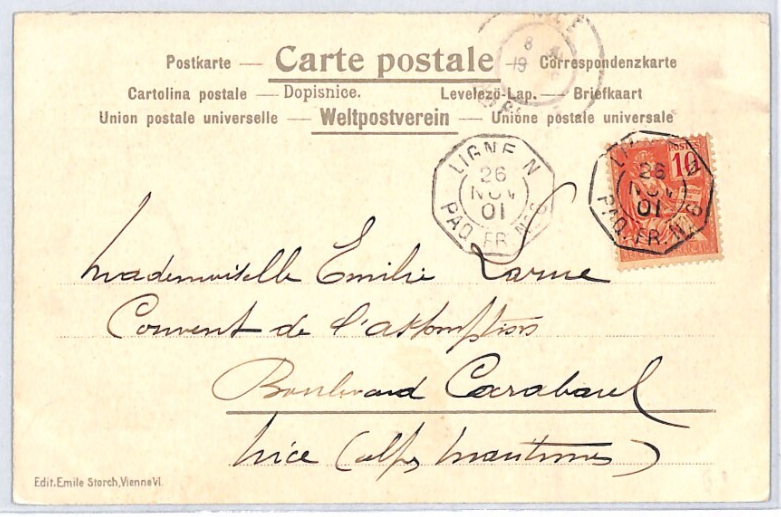 Postkarte — Carte postale — Correspondenzkarte
Cartolina postale — Dopisnice. Levelező-Lap. — Briefkaart
Union postale universelle — Weltpostverein — Unione postale universale
8
19
LIGNE N
26
NOV
01
PAQ. FR. Nº 8
POSTES
10
26
NOV
01
PAQ. FR. Nº 8
Mademoiselle Emilie Larue
Couvent de l'assomption
Boulevard Carabacel
Nice (alpes maritimes)
Edit. Emile Storch, Vienne VI.